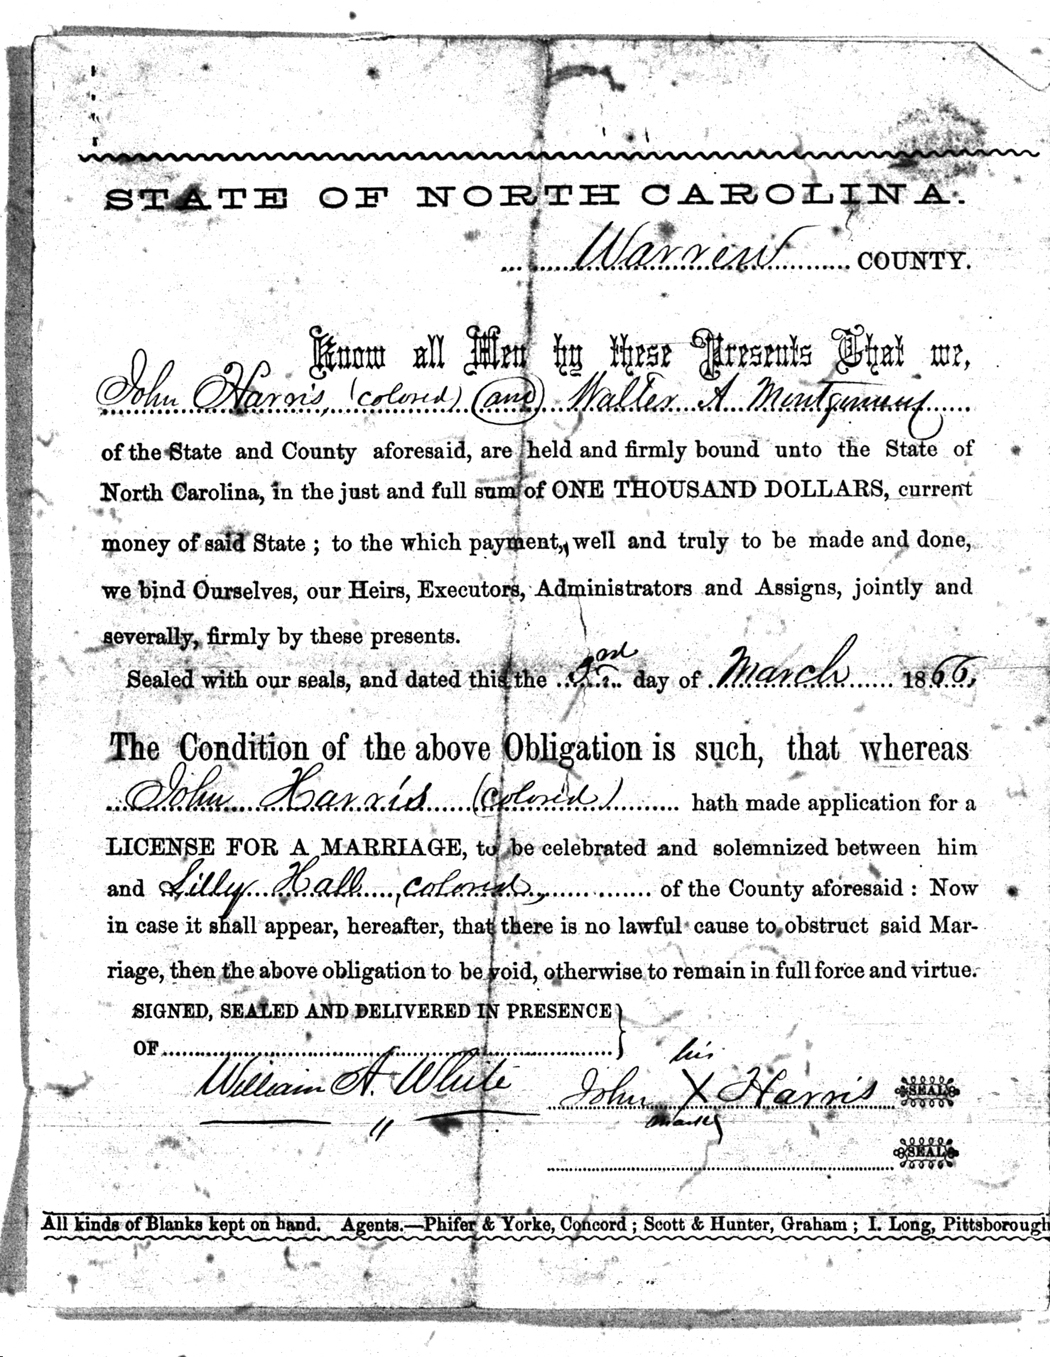 STATE OF NORTH CAROLINA.
Warren COUNTY.
Know all Men by these Presents That we,
John Harris (colored) (and) Walter A Montgomery
of the State and County aforesaid, are held and firmly bound unto the State of
North Carolina, in the just and full sum of ONE THOUSAND DOLLARS, current
money of said State ; to the which payment, well and truly to be made and done,
we bind Ourselves, our Heirs, Executors, Administrators and Assigns, jointly and
severally, firmly by these presents.
Sealed with our seals, and dated this the 3rd day of March 1866.
The Condition of the above Obligation is such, that whereas
John Harris (colored) hath made application for a
LICENSE FOR A MARRIAGE, to be celebrated and solemnized between him
and Lilly Hall, colored, of the County aforesaid : Now
in case it shall appear, hereafter, that there is no lawful cause to obstruct said Mar-
riage, then the above obligation to be void, otherwise to remain in full force and virtue.
SIGNED, SEALED AND DELIVERED IN PRESENCE
OF
his
William A. White
John X Harris SEAL
mark
SEAL
All kinds of Blanks kept on hand. Agents.—Phifer & Yorke, Concord ; Scott & Hunter, Graham ; I. Long, Pittsborough